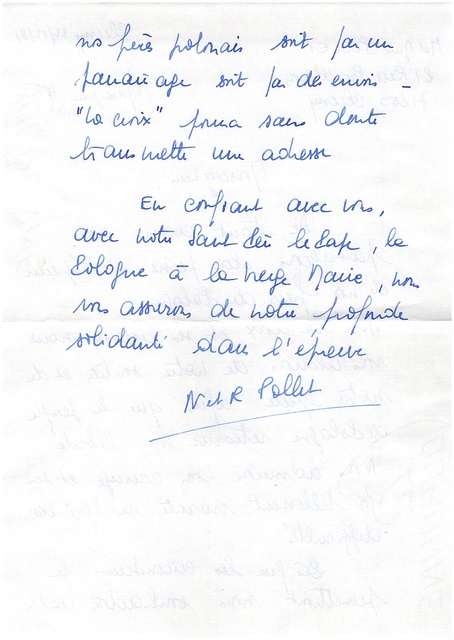 nos frères polonais soit par un
parainage soit par des envois -
"La croix" pourra sans doute
transmettre une adresse
En confiant avec vous,
avec notre Saint Père le Pape, la
Pologne à la Vierge Marie, nous
vous assurons de notre profonde
solidarité dans l'épreuve
N et R Pollet